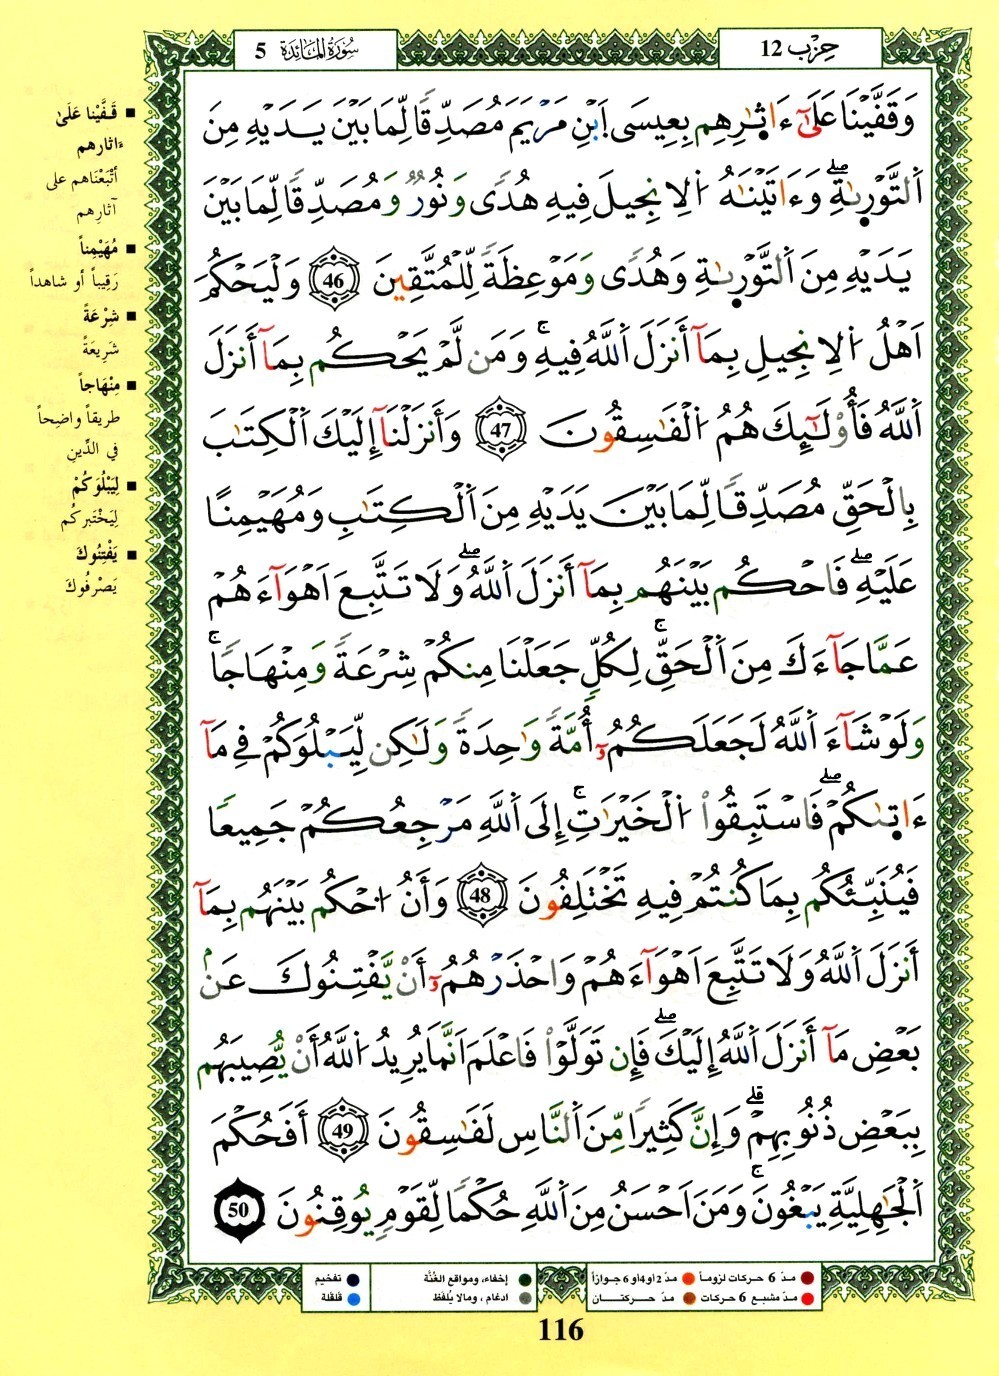 سُورَةُ المَائِدَة 5
حِزْب 12
وَقَفَّيْنَا عَلَىٰٓ ءَاثٰ۪رِهِم بِعِيسَى اَبْنِ مَرْيَمَ مُصَدِّقاً لِّمَا بَيْنَ يَدَيْهِ مِنَ
اَ۬لتَّوْر۪يٰةِۖ وَءَاتَيْنَٰهُ اُ۬لِانجِيلَ فِيهِ هُدىً وَنُورٌ وَمُصَدِّقاً لِّمَا بَيْنَ
يَدَيْهِ مِنَ اَ۬لتَّوْر۪يٰةِ وَهُدىً وَمَوْعِظَةً لِّلْمُتَّقِينَ 46 وَلْيَحْكُمَ
اَهْلُ اُ۬لِانجِيلِ بِمَآ أَنزَلَ اَ۬للَّهُ فِيهِۚ وَمَن لَّمْ يَحْكُم بِمَآ أَنزَلَ
اَ۬للَّهُ فَأُوْلَٰٓئِكَ هُمُ اُ۬لْفَٰسِقُونَ 47 وَأَنزَلْنَآ إِلَيْكَ اَ۬لْكِتَٰبَ
بِالْحَقِّ مُصَدِّقاً لِّمَا بَيْنَ يَدَيْهِ مِنَ اَ۬لْكِتَٰبِ وَمُهَيْمِناً
عَلَيْهِۖ فَاحْكُم بَيْنَهُم بِمَآ أَنزَلَ اَ۬للَّهُۖ وَلَا تَتَّبِعَ اَهْوَآءَهُمْ
عَمَّا جَآءَكَ مِنَ اَ۬لْحَقِّۚ لِكُلٍّ جَعَلْنَا مِنكُمْ شِرْعَةً وَمِنْهَاجاًۚ
وَلَوْ شَآءَ اَ۬للَّهُ لَجَعَلَكُمُۥٓ أُمَّةً وَٰحِدَةً وَلَٰكِن لِّيَبْلُوَكُمْ فِي مَآ
ءَات۪يٰكُمْۖ فَاسْتَبِقُواْ اُ۬لْخَيْرَٰتِۚ إِلَى اَ۬للَّهِ مَرْجِعُكُمْ جَمِيعاً
فَيُنَبِّئُكُم بِمَا كُنتُمْ فِيهِ تَخْتَلِفُونَ 48 وَأَنُ اُ۟حْكُم بَيْنَهُم بِمَآ
أَنزَلَ اَ۬للَّهُ وَلَا تَتَّبِعَ اَهْوَآءَهُمْ وَاحْذَرْهُمُۥٓ أَنْ يَّفْتِنُوكَ عَنۢ
بَعْضِ مَآ أَنزَلَ اَ۬للَّهُ إِلَيْكَۖ فَإِن تَوَلَّوْاْ فَاعْلَمَ اَنَّمَا يُرِيدُ اُ۬للَّهُ أَنْ يُّصِيبَهُم
بِبَعْضِ ذُنُوبِهِمْۗ وَإِنَّ كَثِيراً مِّنَ اَ۬لنَّاسِ لَفَٰسِقُونَ 49 أَفَحُكْمَ
اَ۬لْجَٰهِلِيَّةِ يَبْغُونَۚ وَمَنَ اَحْسَنُ مِنَ اَ۬للَّهِ حُكْماً لِّقَوْمٍ يُوقِنُونَ 50
■ قَفَّيْنا عَلَىٰ
ءاثارِهم
أتْبَعْنَاهم على
آثارِهم
■ مُهَيْمِناً
رَقِيباً أو شاهداً
■ شِرْعَةً
شَرِيعَةً
■ مِنْهَاجاً
طريقاً واضِحاً
في الدِّينِ
■ لِيَبْلُوَكُمْ
لِيَخْتَبِركُم
■ يَفْتِنُوكَ
يَصْرِفُوكَ
مدّ 6 حركات لزوماً
مدّ 2 أو 4 أو 6 جوازاً
إخفاء، ومواقع الغُنَّة
تفخيم
مدّ مشبع 6 حركات
مدّ حركتان
ادغام ، ومالا يُلفَظ
قلقلة
116